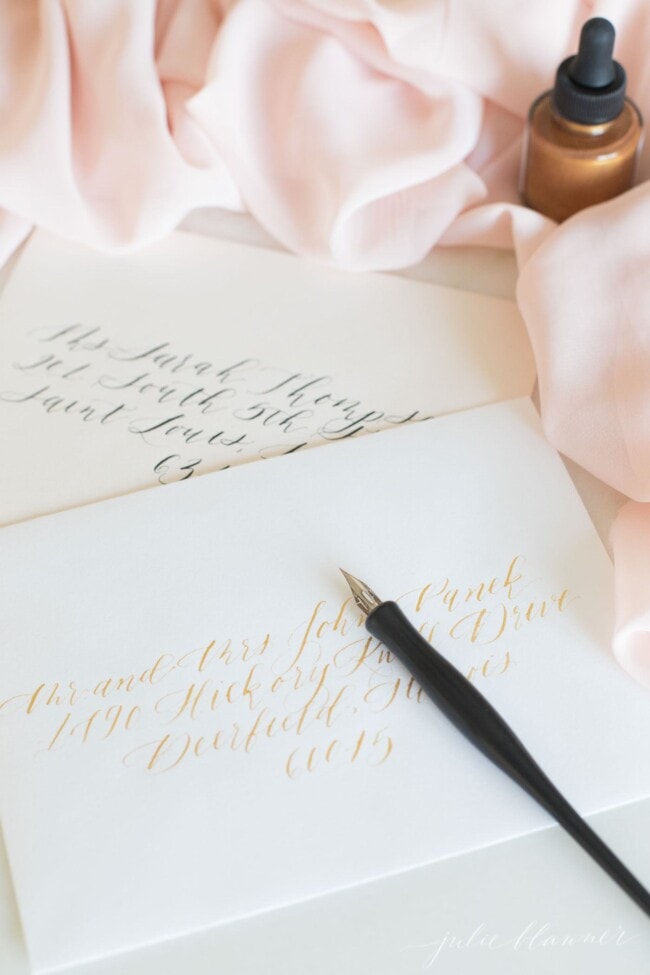 Ms Sarah Thomps
South 5th
Saint Louis,
63
Mr. and Mrs John Panek
1490 Hickory Drive
Deerfield, Illinois
60015
julie blanner